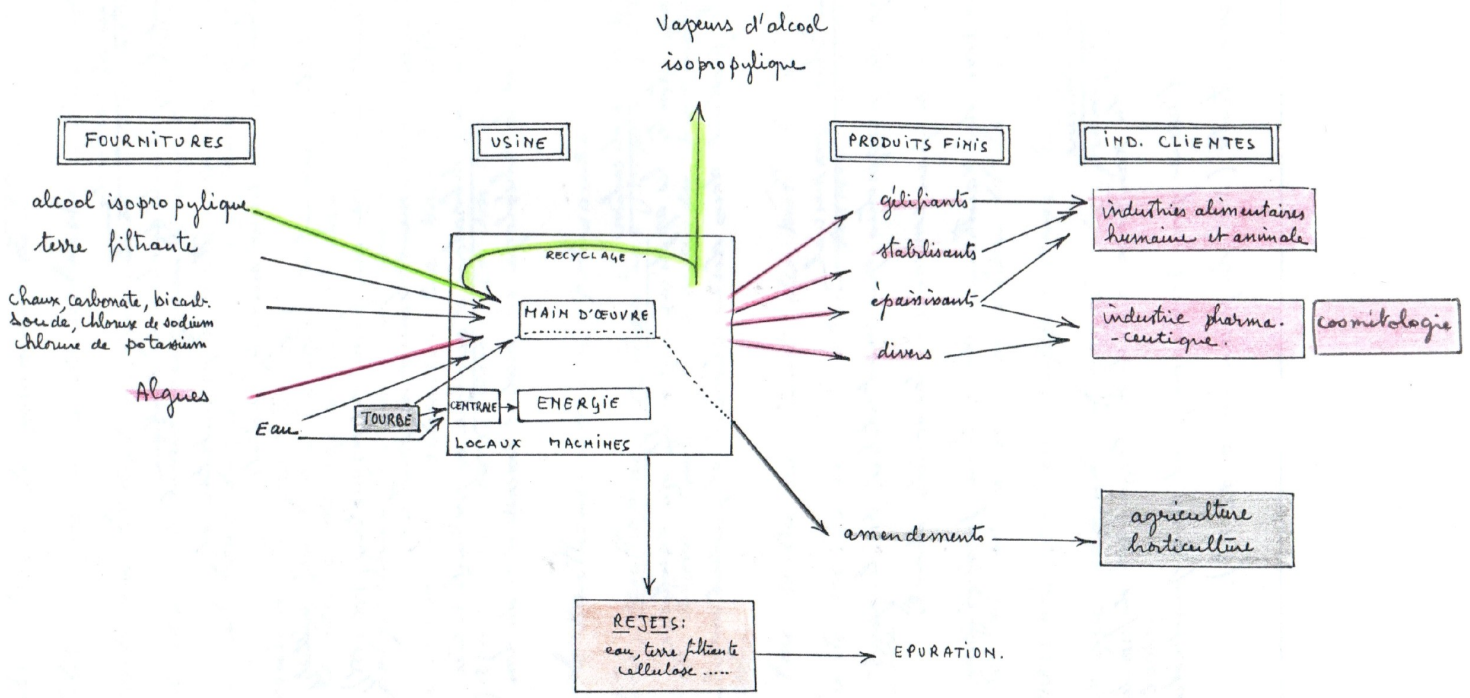 Vapeurs d'alcool
isopropylique
FOURNITURES
USINE
PRODUITS FINIS
IND. CLIENTES
alcool isopropylique
terre filtrante
chaux, carbonate, bicarb.
soude, chlorure de sodium
chlorure de potassium
Algues
Eau
TOURBE
RECYCLAGE
MAIN D'ŒUVRE
CENTRALE
ENERGIE
LOCAUX MACHINES
gélifiants
stabilisants
épaissisants
divers
industries alimentaires
humaine et animale
industrie pharma.
-ceutique.
cosmétologie
amendements
agriculture
horticulture
REJETS:
eau, terre filtrante
cellulose .....
EPURATION.